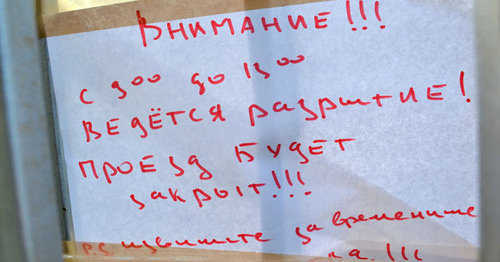 ВНИМАНИЕ!!!
С 9⁰⁰ до 13⁰⁰
ВЕДЁТСЯ разрытие!
ПРОЕЗД БУДЕТ
закрыт!!!
P.S. извините за
!!!